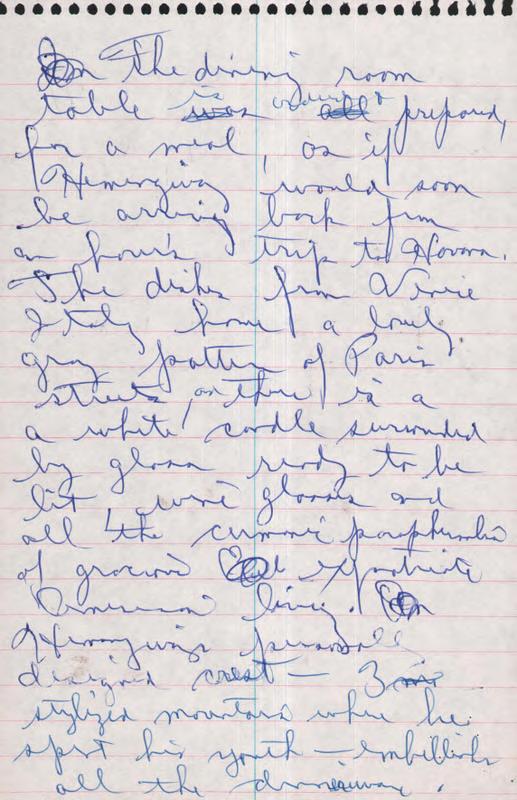 In The dining room
table is ~~was~~ ~~all~~ prepared,
for a meal, as if
Hemingway would soon
be arriving back from
an hour's trip to Havana.
The dishes from Venice
Italy have a lovely
gray pattern of Paris
streets, on there is a
a white candle surrounded
by glass ready to be
lit, wine glasses and
all the paraphernalia
of gracious expatriate
American living.
Hemingways personally
designed crest — 3
stylized mountains where he
spent his youth — embellish
all the dinnerware.